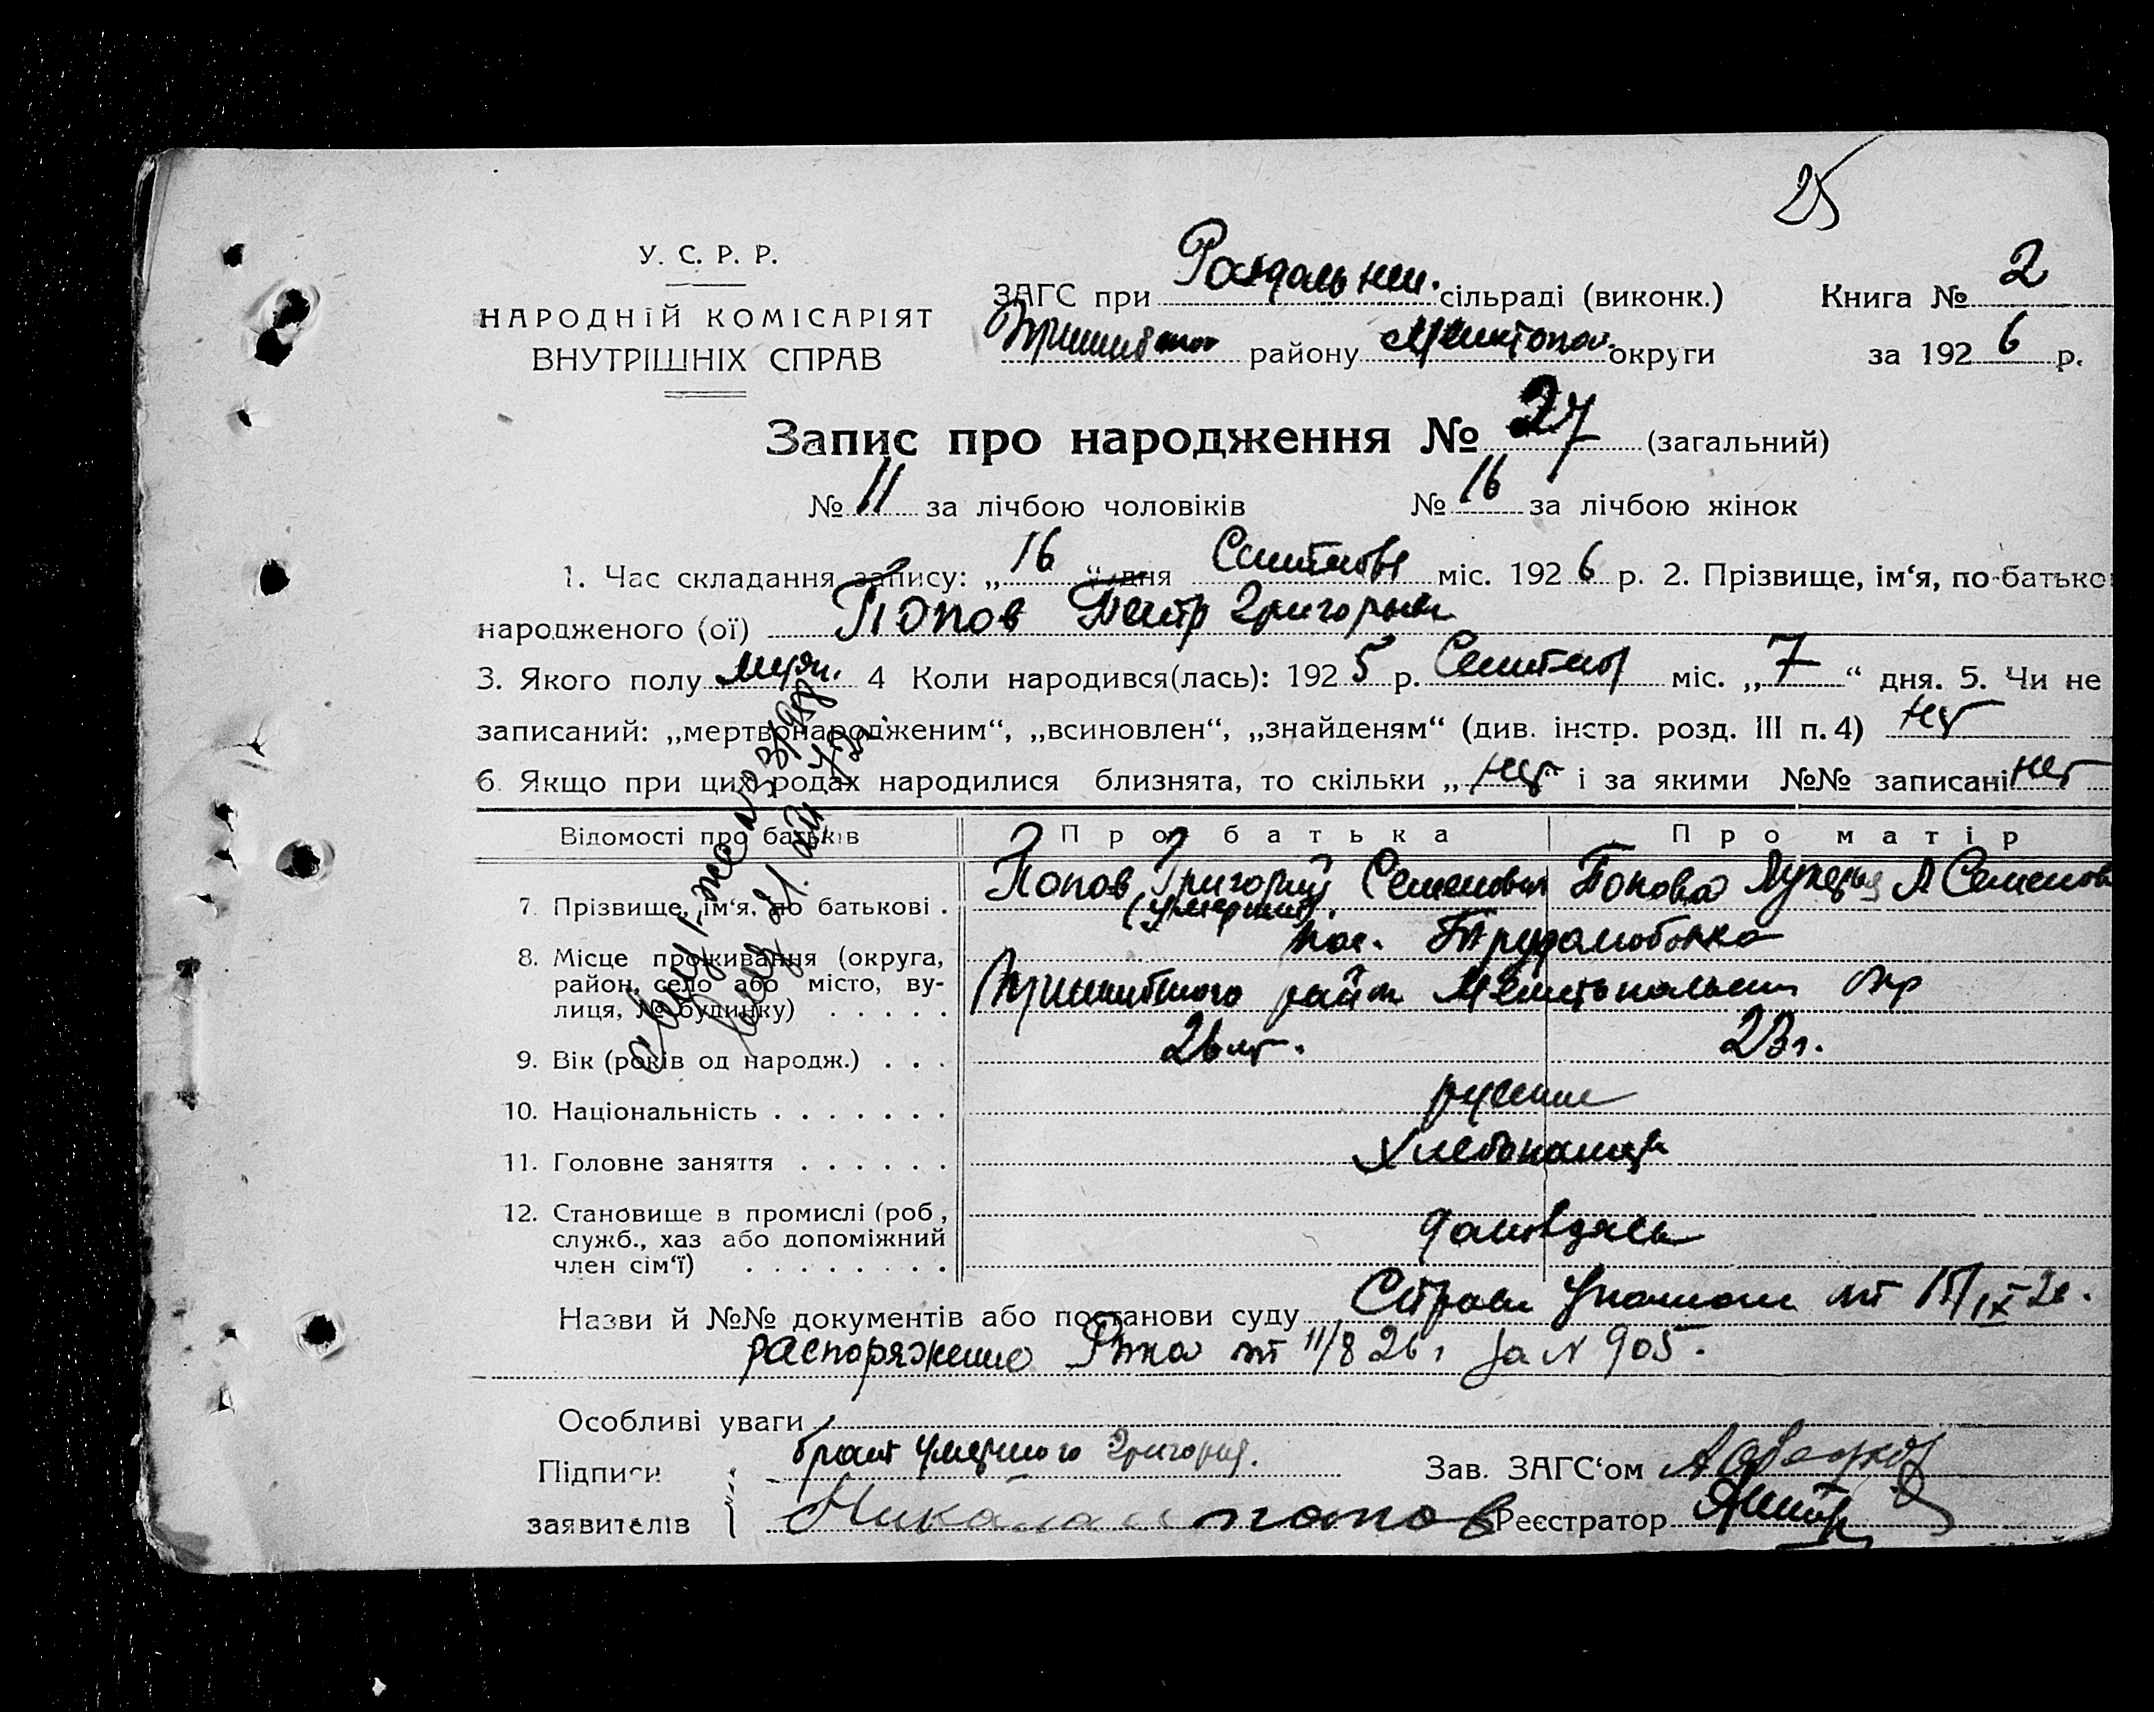 25
У. С. Р. Р.
НАРОДНІЙ КОМІСАРІЯТ
ВНУТРІШНІХ СПРАВ
ЗАГС при Раздольнен. сільраді (виконк.)
району округи
Книга № 2
за 1926 р.
Запис про народження № 27 (загальний)
№ 11 за лічбою чоловіків № 16 за лічбою жінок
1. Час складання запису: „16“ дня Сентября міс. 1926 р. 2. Прізвище, ім‘я, по-батько
народженого (ої) Попов Петр Григорьев
3. Якого полу муж. 4 Коли народився(лась): 1925 р. Сентяб міс. „7“ дня. 5. Чи не
записаний: „мертвонародженим“, „всиновлен“, „знайденям“ (див. інстр. розд. III п. 4) нет
6. Якщо при цих родах народилися близнята, то скільки „нет“ і за якими №№ записані нет
Відомості про батьків Про батька Про матір
7. Прізвище, ім‘я, по батькові . Попов Григорий Семенович Попова Лукерья Семенов
(умерший).
8. Місце проживання (округа, район, село або місто, вулиця, № будинку) . . . . . пос. Трудолюбовка
район Окр
9. Вік (років од народж.) . . . 26 лет. 23 г.
10. Національність . . . . . . . русские
11. Головне заняття . . . . . . Хлебопашец
12. Становище в промислі (роб,
служб., хаз або допоміжний
член сім‘ї) . . . . . . . .
Назви й №№ документів або постанови суду от 15/IX 26.
распоряжение Рика от 11/8 26 г за № 905.
Особливі уваги
Підписи брат умершого Григория.
заявителів Николай попов
Зав. ЗАГС‘ом
Реєстратор